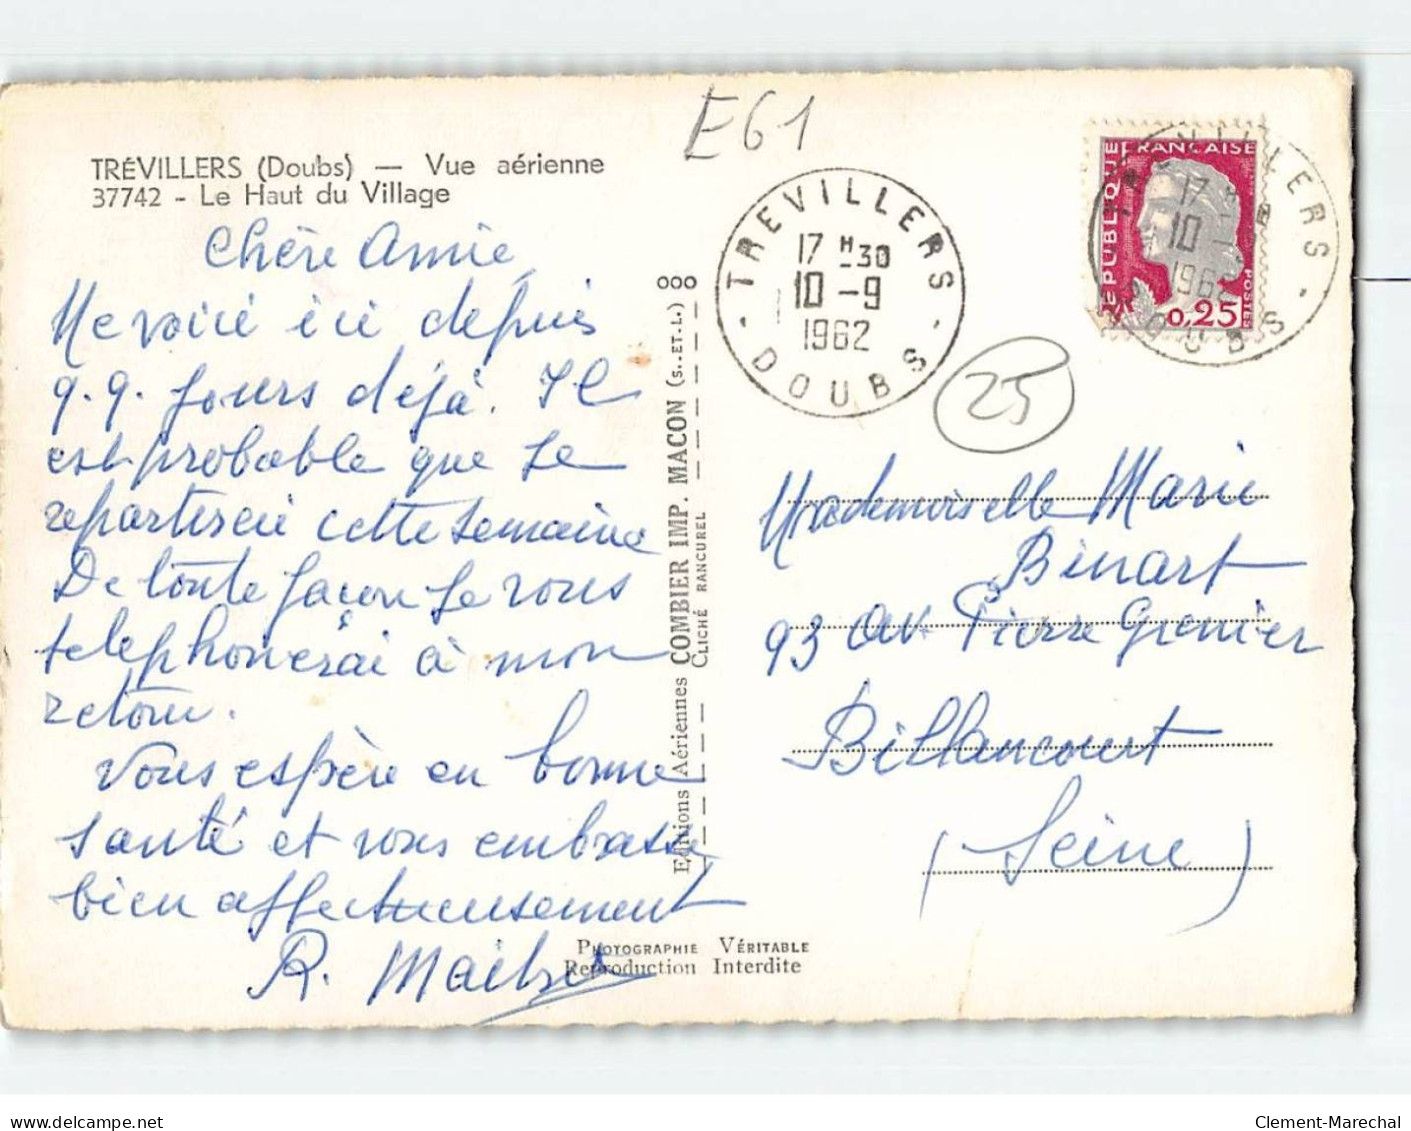 TRÉVILLERS (Doubs) — Vue aérienne
37742 - Le Haut du Village
E61
Chère Amie,
Me voici ici depuis
q.q. jours déjà. Il
est probable que je
repartirai cette semaine
De toute façon je vous
telephonerai à mon
retour.
Vous espère en bonne
santé et vous embrasse
bien affectueusement
R.
Editions Aériennes COMBIER IMP. MACON (S.-ET.L.) ooo
CLICHÉ RANCUREL
PHOTOGRAPHIE VÉRITABLE
Reproduction Interdite
TREVILLERS
17 H 30
10 - 9
1962
- DOUBS -
25
REPUBLIQUE FRANÇAISE
POSTES
0,25
TREVILLERS
17 H
10
1962
DOUBS -
Mademoiselle Marie
Binart
93 av. Pierre Grenier
Billancourt
(Seine)
Clement-Marechal